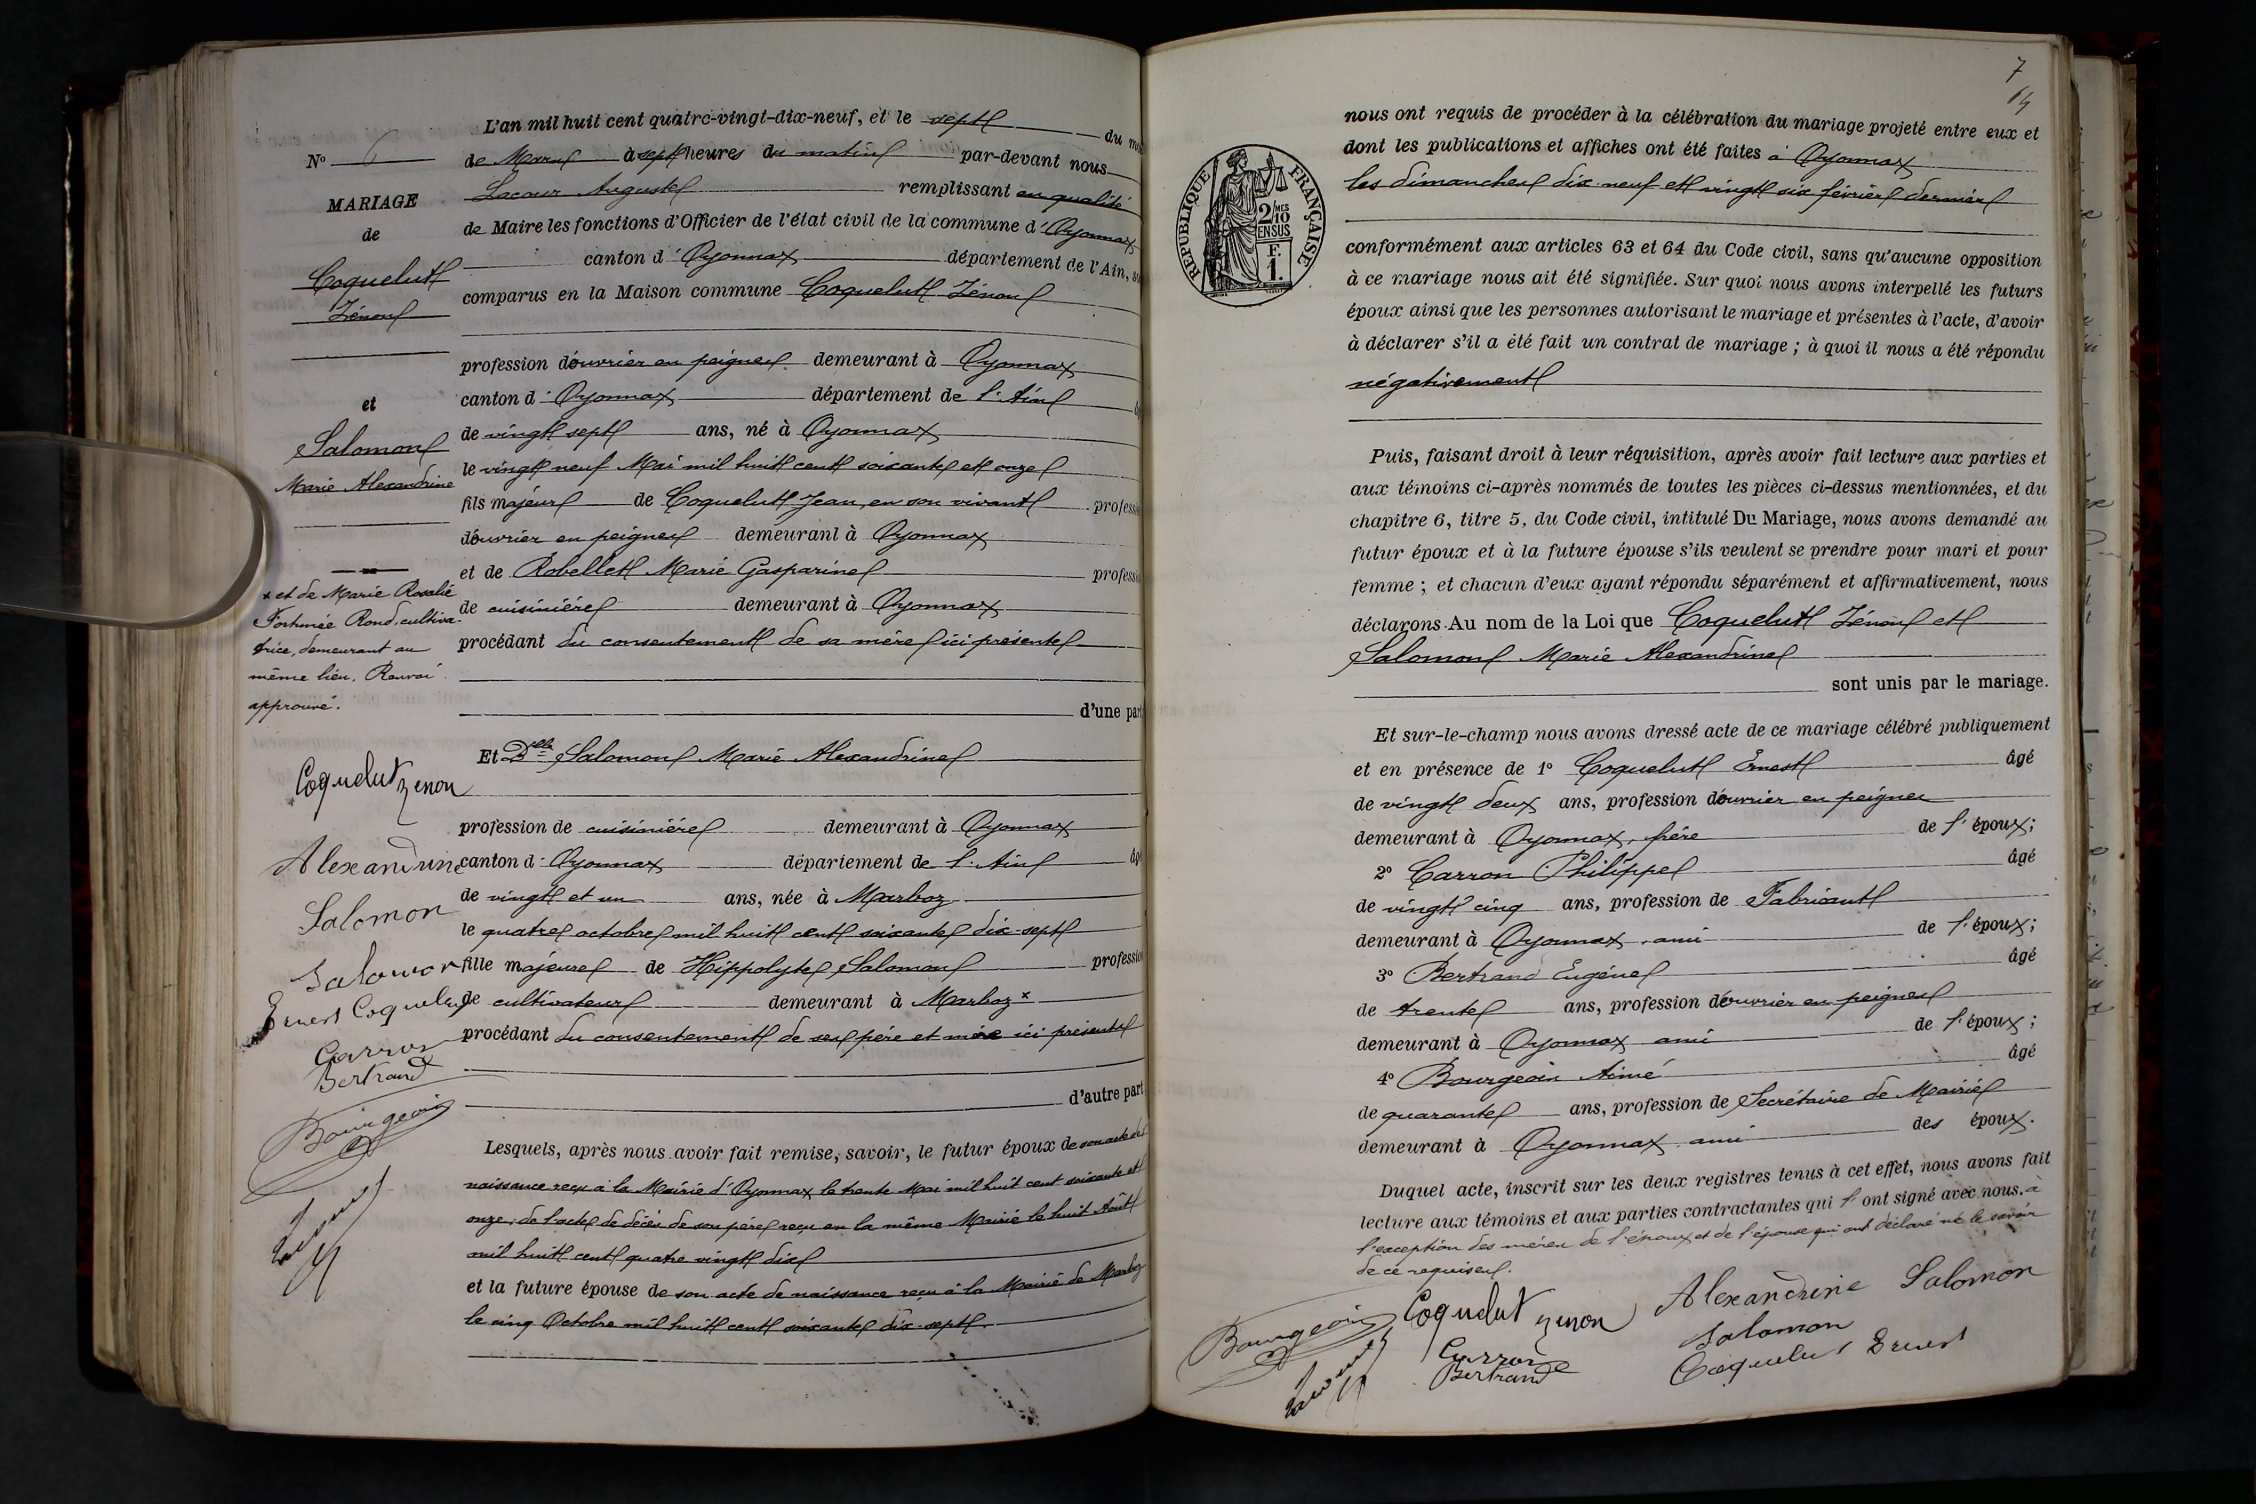 L'an mil huit cent quatre-vingt-dix-neuf, et le sept du mois
de Mars à sept heures du matin par-devant nous
Lacour Auguste remplissant en qualité
de Maire les fonctions d'Officier de l'état civil de la commune d'Oyonnax
canton d'Oyonnax département de l'Ain, s
comparus en la Maison commune Coquelut Zénon
profession d'ouvrier en peignes demeurant à Oyonnax
canton d'Oyonnax département de l'Ain
de vingt sept ans, né à Oyonnax
le vingt neuf Mai mil huit cent soixante et onze
fils majeur de Coquelut Jean, en son vivant profess
d'ouvrier en peignes demeurant à Oyonnax
et de Robellet Marie Gasparine profess
de cuisinière demeurant à Oyonnax
procédant du consentement de sa mère ici présente
d'une part
Et Dlle Salomon Marie Alexandrine
profession de cuisinière demeurant à Oyonnax
canton d'Oyonnax département de l'Ain âg
de vingt et un ans, née à Marboz
le quatre octobre mil huit cent soixante dix-sept
fille majeure de Hippolyte Salomon profession
de cultivateur demeurant à Marboz x
procédant du consentement de ses père et mère ici présents
d'autre part
Lesquels, après nous avoir fait remise, savoir, le futur époux de son acte de
naissance reçu à la Mairie d'Oyonnax le trente Mai mil huit cent soixante et
onze, de l'acte de décès de son père reçu en la même Mairie le huit Août
mil huit cent quatre vingt dix
et la future épouse de son acte de naissance reçu à la Mairie de Marboz
le cinq Octobre mil huit cent soixante dix-sept.
No 6
MARIAGE
de
Coquelut
Zénon
et
Salomon
Marie Alexandrine
x et de Marie Rosalie
Fortunée Rond, cultiva-
trice, demeurant au
même lieu. Renvoi
approuvé.
Coquelut zenon
Alexandrine
Salomon
Salomon
Ernest Coquelut
Carron
Bertrand
Bourgeois
7
14
RÉPUBLIQUE FRANÇAISE
2/10 MES
EN SUS
F.
1.
nous ont requis de procéder à la célébration du mariage projeté entre eux et
dont les publications et affiches ont été faites à Oyonnax
les dimanches dix-neuf et vingt six février dernier
conformément aux articles 63 et 64 du Code civil, sans qu'aucune opposition
à ce mariage nous ait été signifiée. Sur quoi nous avons interpellé les futurs
époux ainsi que les personnes autorisant le mariage et présentes à l'acte, d'avoir
à déclarer s'il a été fait un contrat de mariage ; à quoi il nous a été répondu
négativement
Puis, faisant droit à leur réquisition, après avoir fait lecture aux parties et
aux témoins ci-après nommés de toutes les pièces ci-dessus mentionnées, et du
chapitre 6, titre 5, du Code civil, intitulé Du Mariage, nous avons demandé au
futur époux et à la future épouse s'ils veulent se prendre pour mari et pour
femme ; et chacun d'eux ayant répondu séparément et affirmativement, nous
déclarons Au nom de la Loi que Coquelut Zénon et
Salomon Marie Alexandrine
sont unis par le mariage.
Et sur-le-champ nous avons dressé acte de ce mariage célébré publiquement
et en présence de 1° Coquelut Ernest âgé
de vingt deux ans, profession d'ouvrier en peignes
demeurant à Oyonnax, frère de l'époux;
2° Carron Philippe âgé
de vingt cinq ans, profession de Fabricant
demeurant à Oyonnax, ami de l'époux;
3° Bertrand Eugène âgé
de trente ans, profession d'ouvrier en peignes
demeurant à Oyonnax ami de l'époux;
4° Bourgeois Aimé âgé
de quarante ans, profession de Secrétaire de Mairie
demeurant à Oyonnax ami des époux.
Duquel acte, inscrit sur les deux registres tenus à cet effet, nous avons fait
lecture aux témoins et aux parties contractantes qui l'ont signé avec nous. à
l'exception des mères de l'époux et de l'épouse qui ont déclaré ne le savoir
de ce requises.
Coquelut zenon Alexandrine Salomon
Bourgeois
Salomon
Carron
Coquelut Ernest
Bertrand